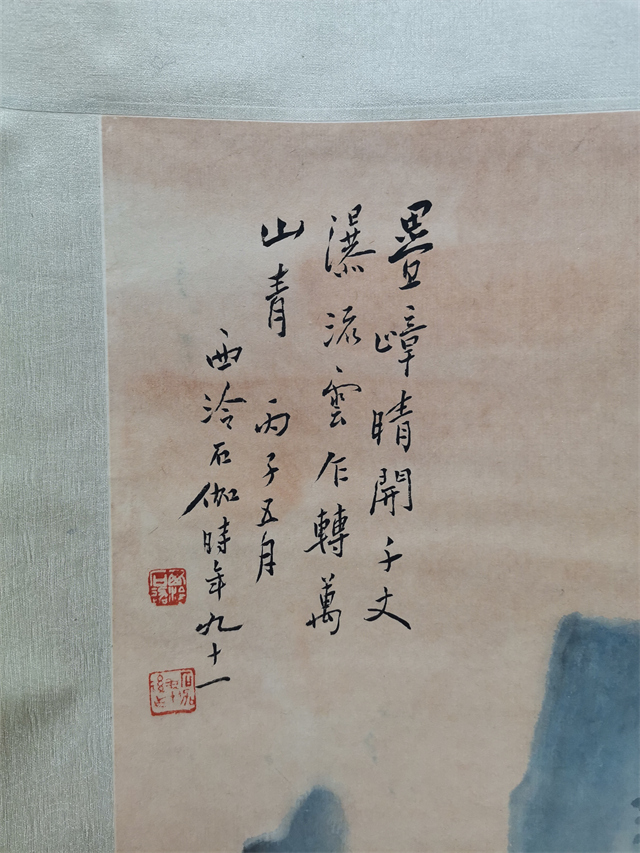 疊嶂晴開千丈
瀑流雲乍轉萬
山青 丙子五月
西泠石伽時年九十一